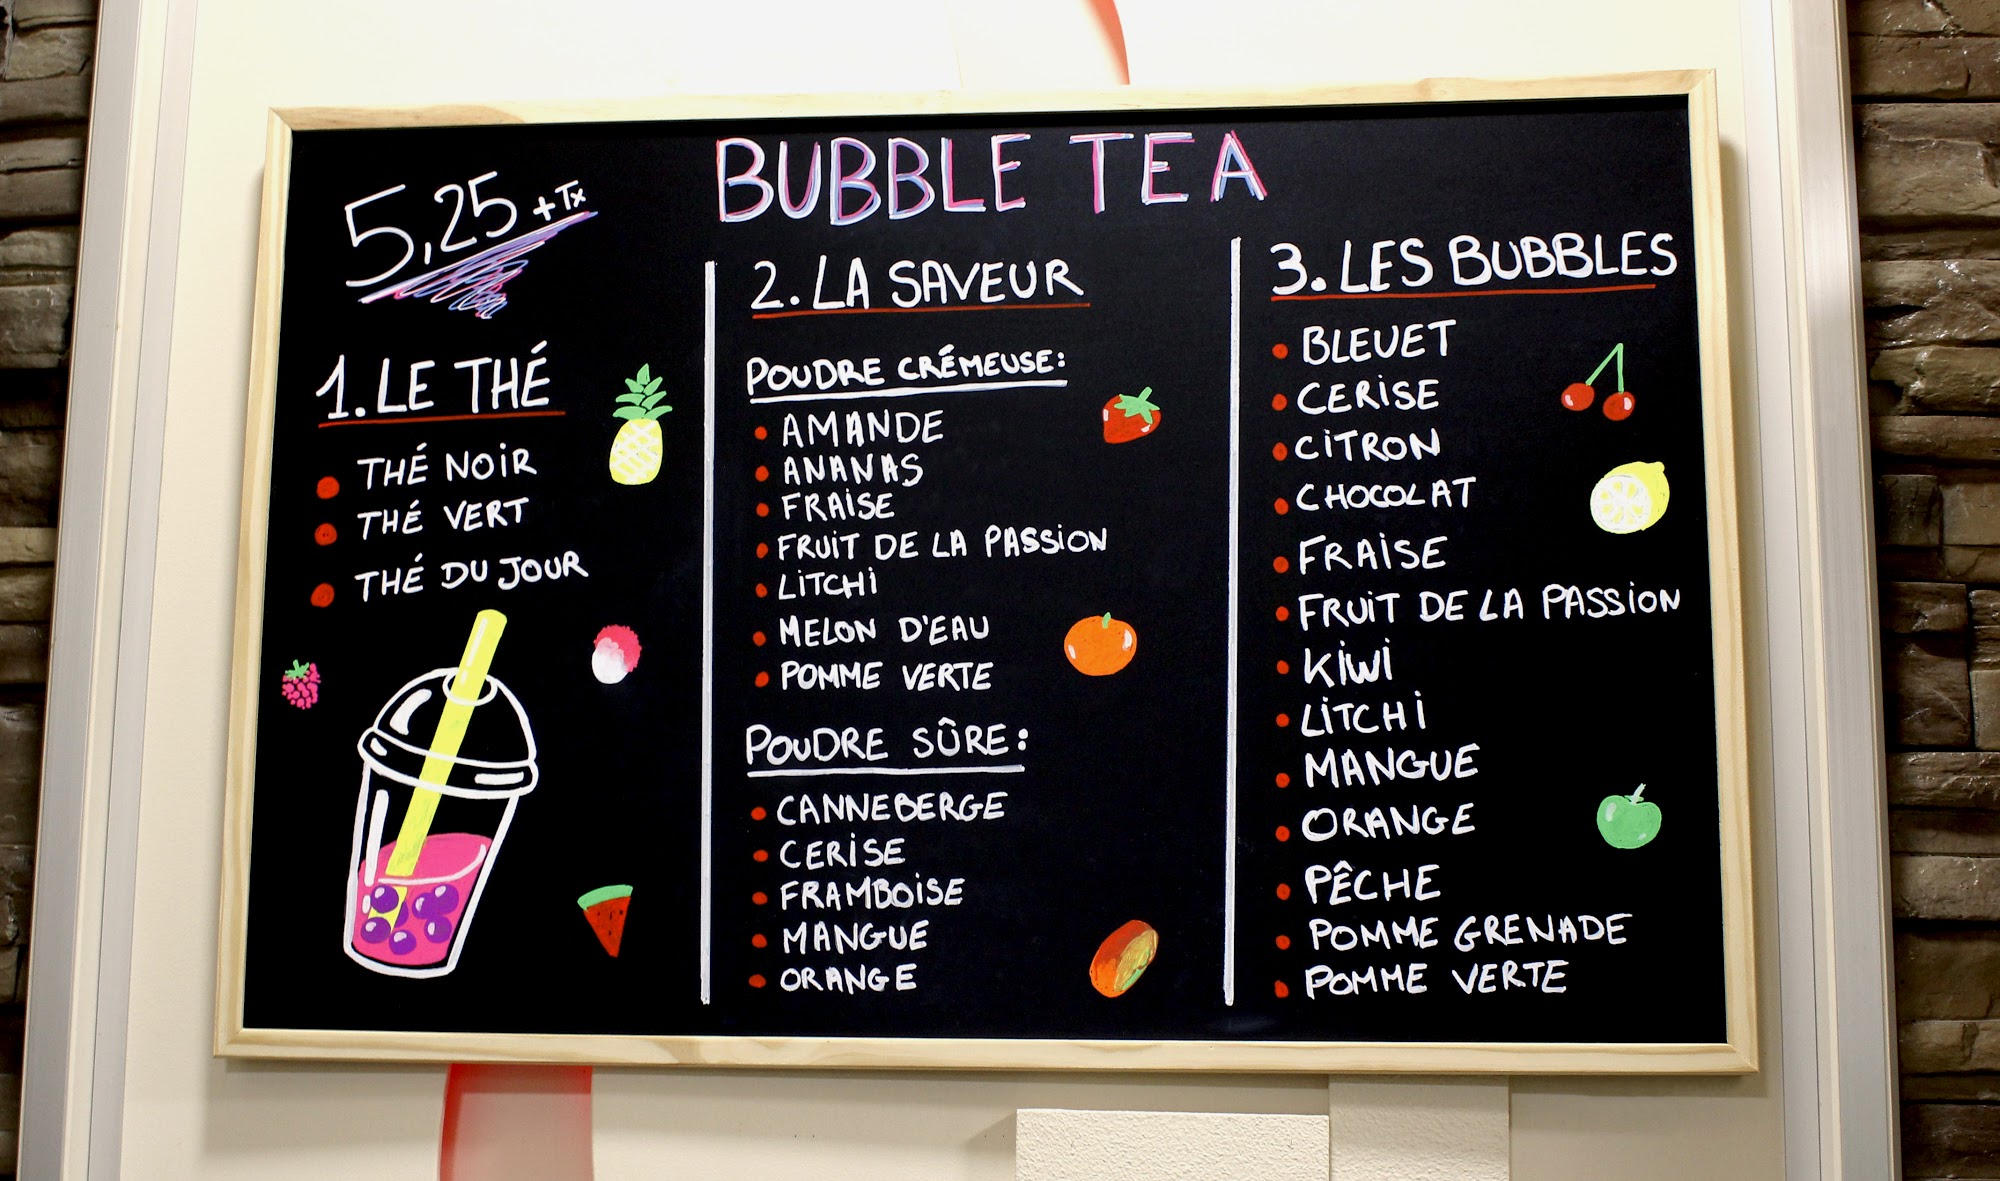 BUBBLE TEA
5,25 + Tx
1. LE THÉ
THÉ NOIR
THÉ VERT
THÉ DU JOUR
2. LA SAVEUR
POUDRE CRÉMEUSE:
AMANDE
ANANAS
FRAISE
FRUIT DE LA PASSION
LITCHI
MELON D'EAU
POMME VERTE
POUDRE SÛRE:
CANNEBERGE
CERISE
FRAMBOISE
MANGUE
ORANGE
3. LES BUBBLES
BLEUET
CERISE
CITRON
CHOCOLAT
FRAISE
FRUIT DE LA PASSION
KIWI
LITCHI
MANGUE
ORANGE
PÊCHE
POMME GRENADE
POMME VERTE